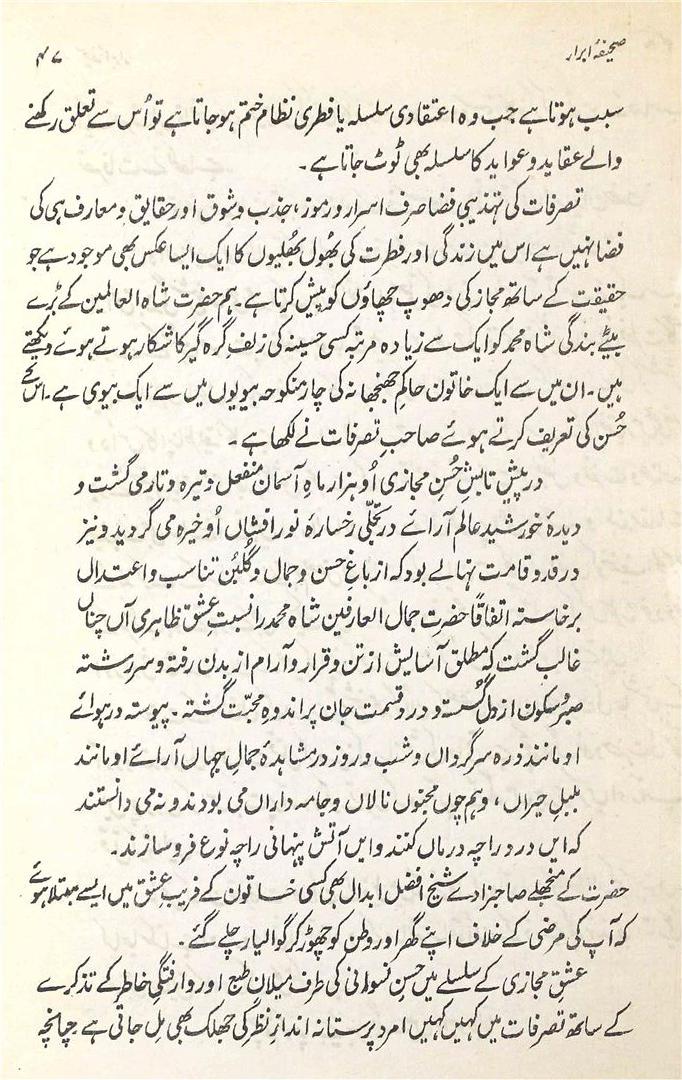 صحیفۂ ابرار
۴۷
سبب ہوتا ہے جب وہ اعتقادی سلسلہ یا فطری نظام ختم ہوجاتا ہے تو اُس سے تعلق رکھنے
والے عقاید و عواید کا سلسلہ بھی ٹوٹ جاتا ہے۔
تصرفات کی تہذیبی فضا صرف اسرار و رموز، جذب و شوق اور حقایق و معارف ہی کی
فضا نہیں ہے اس میں زندگی اور فطرت کی بھُول بھُلیوں کا ایک ایسا عکس بھی موجود ہے جو
حقیقت کے ساتھ مجاز کی دھوپ چھاؤں کو پیش کرتا ہے۔ ہم حضرت شاہ العالمین کے بڑے
بیٹے بندگی شاہ محمد کو ایک سے زیادہ مرتبہ کسی حسینہ کی زلفِ گرہ گیر کا شکار ہوتے ہوئے دیکھتے
ہیں۔ ان میں سے ایک خاتون حاکمِ جھنجھانہ کی چار منکوحہ بیویوں میں سے ایک بیوی ہے۔ اس کے
حُسن کی تعریف کرتے ہوئے صاحبِ تصرفات نے لکھا ہے۔
در پیشِ تابشِ حُسنِ مجازی اُو ہزار ماہِ آسمان منفعل و تیرہ و تار می گشت و
دیدۂ خورشید عالم آرائے در تجلّیِ رخسارۂ نور افشاں اُو خیرہ می گردید و نیز
در قد و قامت نہالے بود کہ از باغِ حسن و جمال و گُلبُن تناسب و اعتدال
برخاستہ اتفاقاً حضرت جمال العارفین شاہ محمد را نسبتِ عشق ظاہری آں چناں
غالب گشت کہ مطلق آسایش از تن و قرار و آرام از بدن رفتہ و سررشتہ
صبر و سکون از دل گُسستہ و در قسمت جان پر اندوہِ محبّت گشتہ۔ پیوستہ در ہوائے
او مانند ذرہ سرگرداں و شب و روز در مشاہدۂ جمالِ جہاں آرائے او مانند
بلبلِ حیراں، و ہم چوں مجنوں نالاں و جامہ داراں می بودند و نہ می دانستند
کہ ایں درد را چہ درماں کنند و ایں آتشِ پنہانی را چہ نوع فرو سازند۔
حضرت کے منجھلے صاحبزادے شیخ افضل ابدال بھی کسی خاتون کے فریبِ عشق میں ایسے مبتلا ہوئے
کہ آپ کی مرضی کے خلاف اپنے گھر اور وطن کو چھوڑ کر گوالیار چلے گئے۔
عشقِ مجازی کے سلسلے میں حسنِ نسوانی کی طرف میلانِ طبع اور وارفتگیِ خاطر کے تذکرے
کے ساتھ تصرفات میں کہیں کہیں امرد پرستانہ اندازِ نظر کی جھلک بھی مِل جاتی ہے۔ چنانچہ